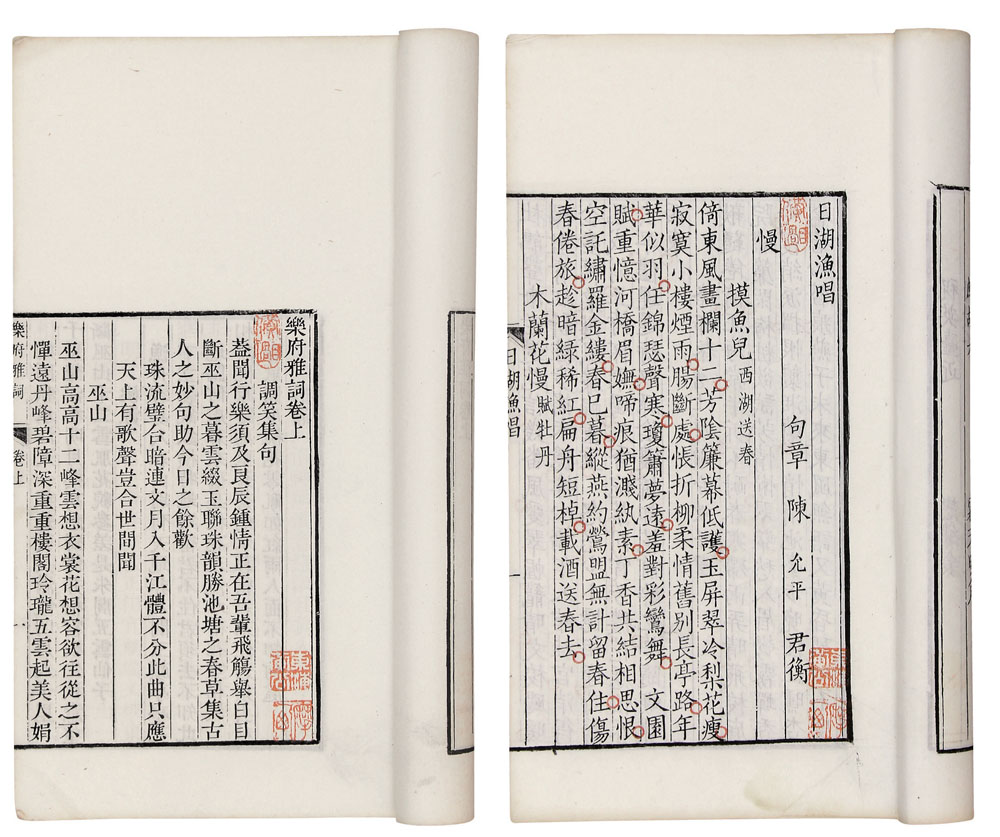 日湖漁唱
句章 陳 允平 君衡
慢
摸魚兒 西湖送春
倚東風畫欄十二芳陰簾幕低護玉屏翠冷梨花瘦
寂寞小樓煙雨腸斷處悵折柳柔情舊別長亭路年
華似羽任錦瑟聲寒瓊簫夢遠羞對彩鸞舞 文園
賦重憶河橋眉嫵啼痕猶濺紈素丁香共結相思恨
空託繡羅金縷春已暮縱燕約鶯盟無計留春住傷
春倦旅趁暗綠稀紅扁舟短棹載酒送春去
木蘭花慢 賦牡丹
日湖漁唱 一
樂府雅詞卷上
調笑集句
葢聞行樂須及良辰鍾情正在吾輩飛觴舉白目
斷巫山之暮雲綴玉聯珠韻勝池塘之春草集古
人之妙句助今日之餘歡
珠流璧合暗連文月入千江體不分此曲只應
天上有歌聲豈合世間聞
巫山
巫山高高十二峰雲想衣裳花想容欲往從之不
憚遠丹峰碧障深重重樓閣玲瓏五雲起美人娟
樂府雅詞 卷上 一